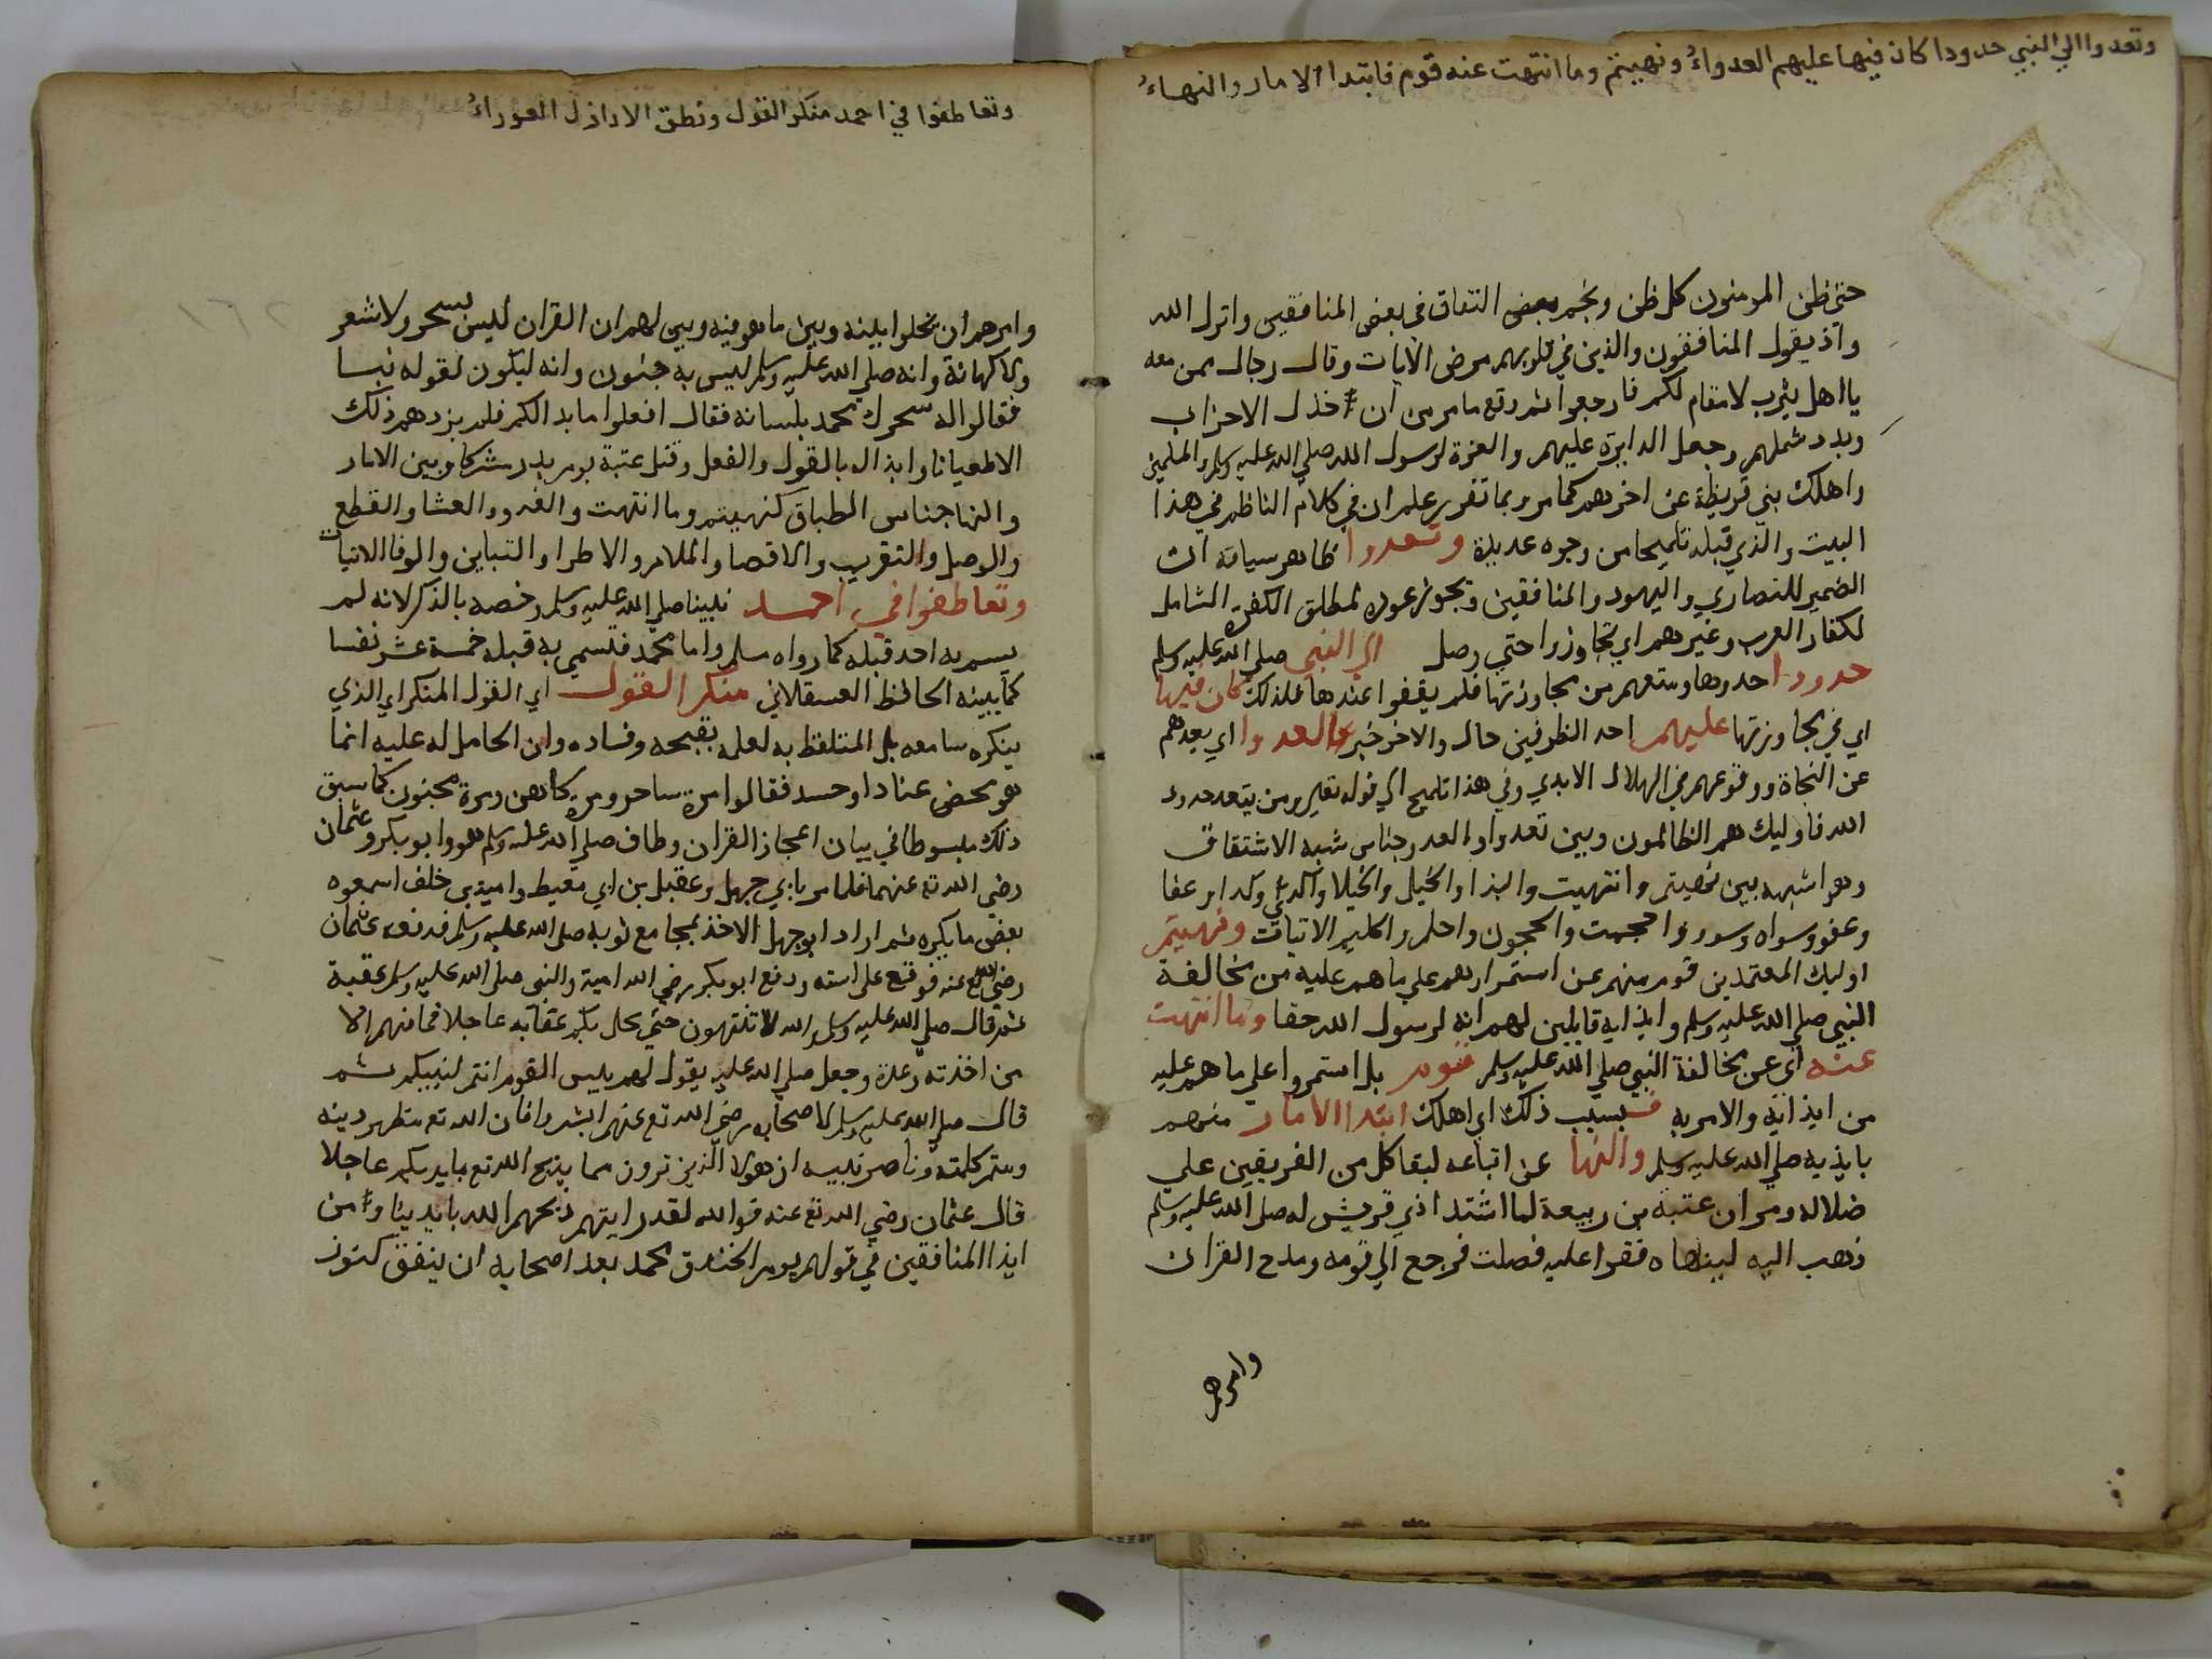 وتعدوا الي النبي حدودا كان فيها عليهم العدواءُ ونهيتم وما انتهت عنه قوم فابتدا الامار والنهاءُ
حتي ظن المومنون كل ظن ونجم بعض النفاق في بعض المنافقين وانزل الله
واذ يقول المنافقون والذين في قلوبهم مرض الايات وقال رجال ممن معه
يا اهل يثرب لا مقام لكم فارجعوا ثم وقع ما مر من ان خذل الاحزاب
وبدد شملهم وجعل الدايرة عليهم والعزة لرسول الله صلي الله عليه وسلم والمسلمين
واهلك بني قريظة عن اخرهم كما مر وبما تقرر علم ان في كلام الناظم في هذا
البيت والذي قبله تلميحا من وجوه عديدة وتعدوا ظاهر سياقه ان
الضمير للنصاري واليهود والمنافقين ويجوز عوده لمطلق الكفرة الشامل
لكفار العرب وغيرهم اي تجاوزوا حتي وصل الي النبي صلي الله عليه وسلم
حدودا حدودها ومنعهم من مجاوزتها فلم يقفوا عندها فلذلك كان فيها
اي في مجاوزتها عليهم احد الظرفين حال والاخر خبر العدوا اي بعدهم
عن النجاة ووقوعهم في الهلاك الابدي وفي هذا تلميح الي قوله تعالي ومن يتعد حدود
الله فاوليك هم الظالمون وبين تعدوا والعدو جناس شبه الاشتقاق
وهو اشبه بين نهيتم وانتهيت والبذا والخيل والخيلا واكدي وكدا وعفا
وعفو وسواه وسور واحجمت والحجون واحلم واكليم الاتيات ونهيتم
اوليك المعتمدين قوم منهم عن استمرارهم علي ما هم عليه من مخالفة
النبي صلي الله عليه وسلم وايذايه قايلين لهم انه لرسول الله حقا وما انتهت
عنه اي عن مخالفة النبي صلي الله عليه وسلم قوم بل استمروا علي ما هم عليه
من ايذايه والامر به فبسبب ذلك اي اهلك ابتدا الامار منهم
بايذيه صلي الله عليه وسلم والنها عن اتباعه لبقا كل من الفريقين علي
ضلاله ومر ان عتبة بن ربيعة لما اشتد اذي قريش له صلي الله عليه وسلم
ذهب اليه لينهاه فقرا عليه فصلت فرجع الي قومه ومدح القران
وامرهم
وتعاطفوا في احمد منكر القول ونطق الاراذل العوراءُ
وامرهم ان يخلوا بينه وبين ما هو فيه وبين لهم ان القران ليس بسحر ولا شعر
ولا كهانة وانه صلي الله عليه وسلم ليس به جنون وانه ليكون لقوله نبا
فقالوا له سحرك محمد بلسانه فقال افعلوا ما بدا لكم فلم يزدهم ذلك
الا طغيانا وايذا له بالقول والفعل وقتل عتبة يوم بدر مشركا وبين الامار
والنها جناس الطباق كنهيتم وما انتهت والغدو والعشا والقطع
والوصل والتقريب والاقصا والملام والاطرا والتباين والوفا الاتيات
وتعاطفوا في احمد نبينا صلي الله عليه وسلم وخصه بالذكر لانه لم
يسم به احد قبله كما رواه مسلم واما محمد فتسمي به قبله خمسة عشر نفسا
كما بينه الحافظ العسقلاني منكر القول اي القول المنكر اي الذي
ينكره سامعه بل المتلفظ به لعلمه بقبحه وفساده وان الحامل له عليه انما
هو محض عنادا وحسد فقالوا مرة ساحر ومرة كاهن ومرة مجنون كما سبق
ذلك مبسوطا في بيان اعجاز القران وطاف صلي الله عليه وسلم هو وابو بكر وعثمان
رضي الله تع عنهما فلما مر بابي جهل وعقبل بن ابي معيط وامية بن خلف اسمعوه
بعض ما يكره ثم اراد ابو جهل الاخذ بمجامع ثوبه صلي الله عليه وسلم فدفعه عثمان
رضي الله تع عنه فوقع علي استه ودفع ابو بكر رضي الله امية والنبي صلي الله عليه وسلم عقبة
ثم قال صلي الله عليه وسلم والله لا تنتهون حتي يحل بكم عقابه عاجلا فما منهم الا
من اخذته رعدة وجعل صلي الله عليه يقول لهم بيس القوم انتم لنبيكم ثم
قال صلي الله عليه وسلم لاصحابه رضي الله تع عنهم ابشروا فان الله تع مظهر دينه
ومتم كلمته وناصر نبيه ان هولا الذين ترون مما يذبح الله تع بايديكم عاجلا
قال عثمان رضي الله تع عنه فوالله لقد رايتهم ذبحهم الله بايدينا ومن
ايذا المنافقين في قولهم يوم الخندق محمد يعد اصحابه ان ينفق كنوز